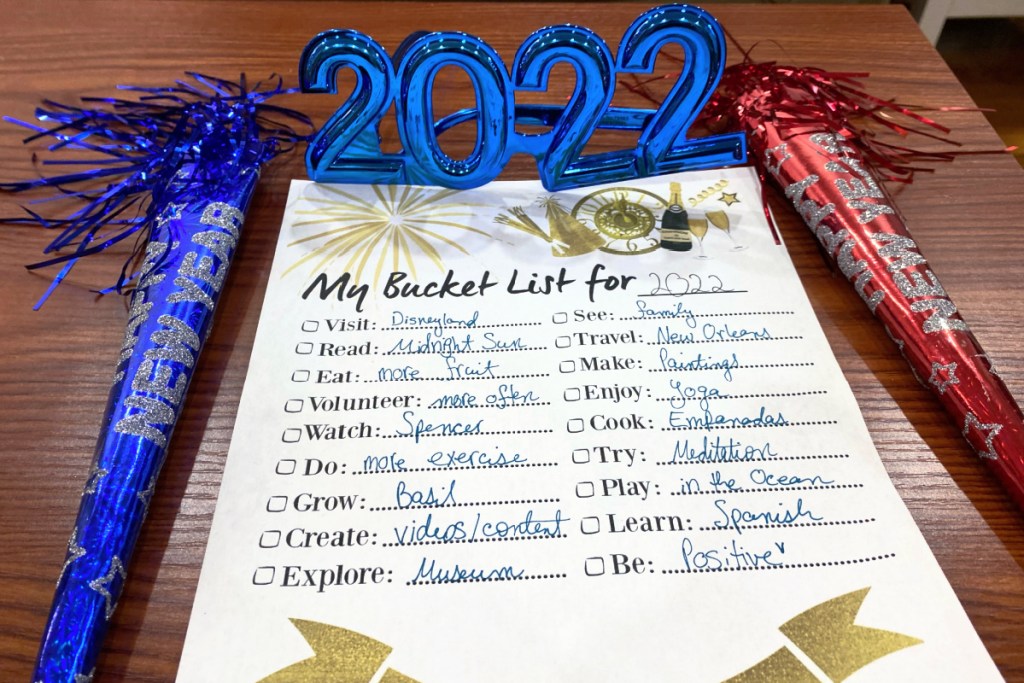 2022
NEW YEAR
NEW YEAR
NEW YEAR
NEW YEAR
My Bucket List for 2022
Visit: Disneyland
See: family
Read: Midnight Sun
Travel: New Orleans
Eat: more fruit
Make: Paintings
Volunteer: more often
Enjoy: Yoga
Watch: Spencer
Cook: Empanadas
Do: more exercise
Try: Meditation
Grow: Basil
Play: in the Ocean
Create: videos/content
Learn: Spanish
Explore: Museum
Be: Positive